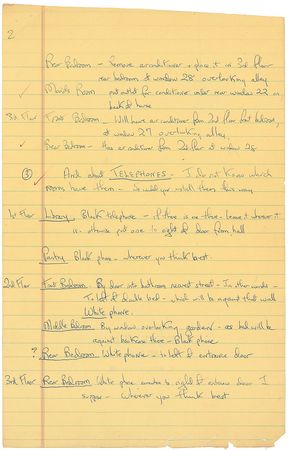 2
Rear Bedroom - Remove airconditioner & place it in 3rd floor
rear bedroom at window 28 overlooking alley
✓ Maid's Room put outlet for conditioner under rear window 22 in
back of house
3rd Floor Front Bedroom - Will have airconditioner from 2nd floor front bedroom,
at window 27 overlooking alley.
✓ Rear Bedroom - Has airconditioner from 2nd floor at window 28
③ ✓ And about TELEPHONES - I do not know which
rooms have them - So would you install them this way
1st Floor Library Black telephone - if there is one there - leave it wherever it
is - otherwise put one to right of door from hall
Pantry Black phone - wherever you think best.
2nd Floor Front Bedroom By door into bathroom nearest street - In other words -
To left of double bed - which will be against that wall
White phone.
Middle Bedroom By window overlooking garden - as bed will be
against bookcase there - Black phone
? Rear Bedroom White phone - to left of entrance door
3rd Floor Rear Bedroom White phone to right of entrance door I
suppose - Wherever you think best